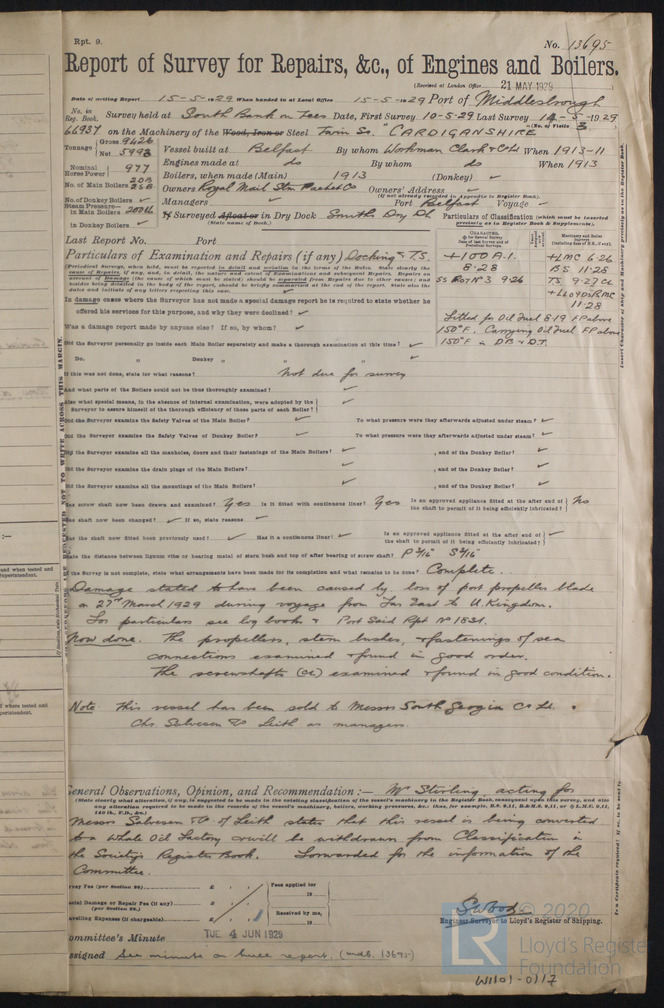 Rpt. 9.
No. 13695
Report of Survey for Repairs, &c., of Engines and Boilers.
(Received at London Office 21 MAY 1929
Date of writing Report 15-5-1929 When handed in at Local Office 15-5-1929 Port of Middlesbrough
No. in Reg. Book. Survey held at South Bank on Tees Date, First Survey 10-5-29 Last Survey 14-5-1929
(No. of Visits 3
66937 on the Machinery of the Wood, Iron or Steel Twin Sc. "CARDIGANSHIRE"
Tonnage Gross 9426 Net 5993 Vessel built at Belfast By whom Workman Clark & Co Ld When 1913-11
Engines made at do By whom do When 1913
Nominal Horse Power 977 Boilers, when made (Main) 1913 (Donkey) ✓
No. of Main Boilers 2DB 2SB Owners Royal Mail Stm Packet Co Owners' Address ✓
(If not already recorded in Appendix to Register Book.)
No. of Donkey Boilers ✓ Managers ✓ Port Belfast Voyage ✓
Steam Pressure in Main Boilers 200 lb If Surveyed Afloat or in Dry Dock Smiths Dry Dk
(State name of Dock.)
in Donkey Boilers ✓
Particulars of Classification (which must be inserted precisely as in the Register Book & Supplements).
Last Report No. Port
Particulars of Examination and Repairs (if any) Docking & T.S.
+100A.1. +LMC 6.26
8.28 BS 11.28
SS No 3 9.26 TS 9.27 CL
+Lloyds RMC 11.28
Fitted for Oil Fuel 8.19 F.P. above
150°F. Carrying Oil Fuel F.P. above
150°F in D.B & D.T.
In damage cases where the Surveyor has not made a special damage report he is required to state whether he
offered his services for this purpose, and why they were declined? ✓
Was a damage report made by anyone else? If so, by whom? ✓
Did the Surveyor personally go inside each Main Boiler separately and make a thorough examination at this time? ✓
Do. Donkey " " " ✓
If this was not done, state for what reasons? Not due for survey
And what parts of the Boilers could not be thoroughly examined? ✓
Also what special means, in the absence of internal examination, were adopted by the
Surveyor to assure himself of the thorough efficiency of those parts of each Boiler? ✓
Did the Surveyor examine the Safety Valves of the Main Boiler? ✓ To what pressure were they afterwards adjusted under steam? ✓
Did the Surveyor examine the Safety Valves of Donkey Boiler? ✓ To what pressure were they afterwards adjusted under steam? ✓
Did the Surveyor examine all the manholes, doors and their fastenings of the Main Boilers? ✓ , and of the Donkey Boiler? ✓
Did the Surveyor examine the drain plugs of the Main Boilers? ✓ , and of the Donkey Boiler? ✓
Did the Surveyor examine all the mountings of the Main Boilers? ✓ , and of the Donkey Boiler? ✓
Has screw shaft now been drawn and examined? Yes Is it fitted with continuous liner? Yes Is an approved appliance fitted at the after end of the shaft to permit of it being efficiently lubricated? No
Has shaft now been changed? ✓ If so, state reasons ✓
Has the shaft now fitted been previously used? ✓ Has it a continuous liner? ✓ Is an approved appliance fitted at the after end of the shaft to permit of it being efficiently lubricated? ✓
State the distance between lignum vitæ or bearing metal of stern bush and top of after bearing of screw shaft?
If the Survey is not complete, state what arrangements have been made for its completion and what remains to be done? Complete.
Damage stated to have been caused by loss of port propeller blade
on 27th March 1929 during voyage from Far East to U. Kingdom.
For particulars see log book & Port Said Rpt No 1831.
Now done. The propellers, stern bushes, & fastenings of sea
connections examined & found in good order.
The screwshafts (CL) examined & found in good condition.
Note This vessel has been sold to Messrs South Georgia Co Ld.
Chr. Salvesen & Co Leith as managers.
General Observations, Opinion, and Recommendation :— Mr Sterling, acting for
(State clearly what alteration, if any, is suggested to be made in the existing classification of the vessel's machinery in the Register Book, consequent upon this survey, and also
any alteration required to be made in the records of the vessel's machinery, boilers, working pressures, &c.: thus, for example, B.S. 9,11, B.&M.S. 9,11, or L.M.C. 9,11,
140 lb., F.D., &c.)
Messrs Salvesen & Co of Leith states that this vessel is being converted
to a Whale Oil Factory & will be withdrawn from Classification in
the Society's Register Book. Forwarded for the information of the
Committee.
Survey Fee (per Section 29) £ : : Fees applied for
19
Special Damage or Repair Fee (if any) (per Section 29.) £ : :
Travelling Expenses (if chargeable) £ : : Received by me,
19
S Wood
Engineer Surveyor to Lloyd's Register of Shipping.
Committee's Minute TUE 4 JUN 1929
Assigned See minute on hull report. (Mdb. 13695)
© 2020
LR
Lloyd's Register
Foundation
W1101-0117